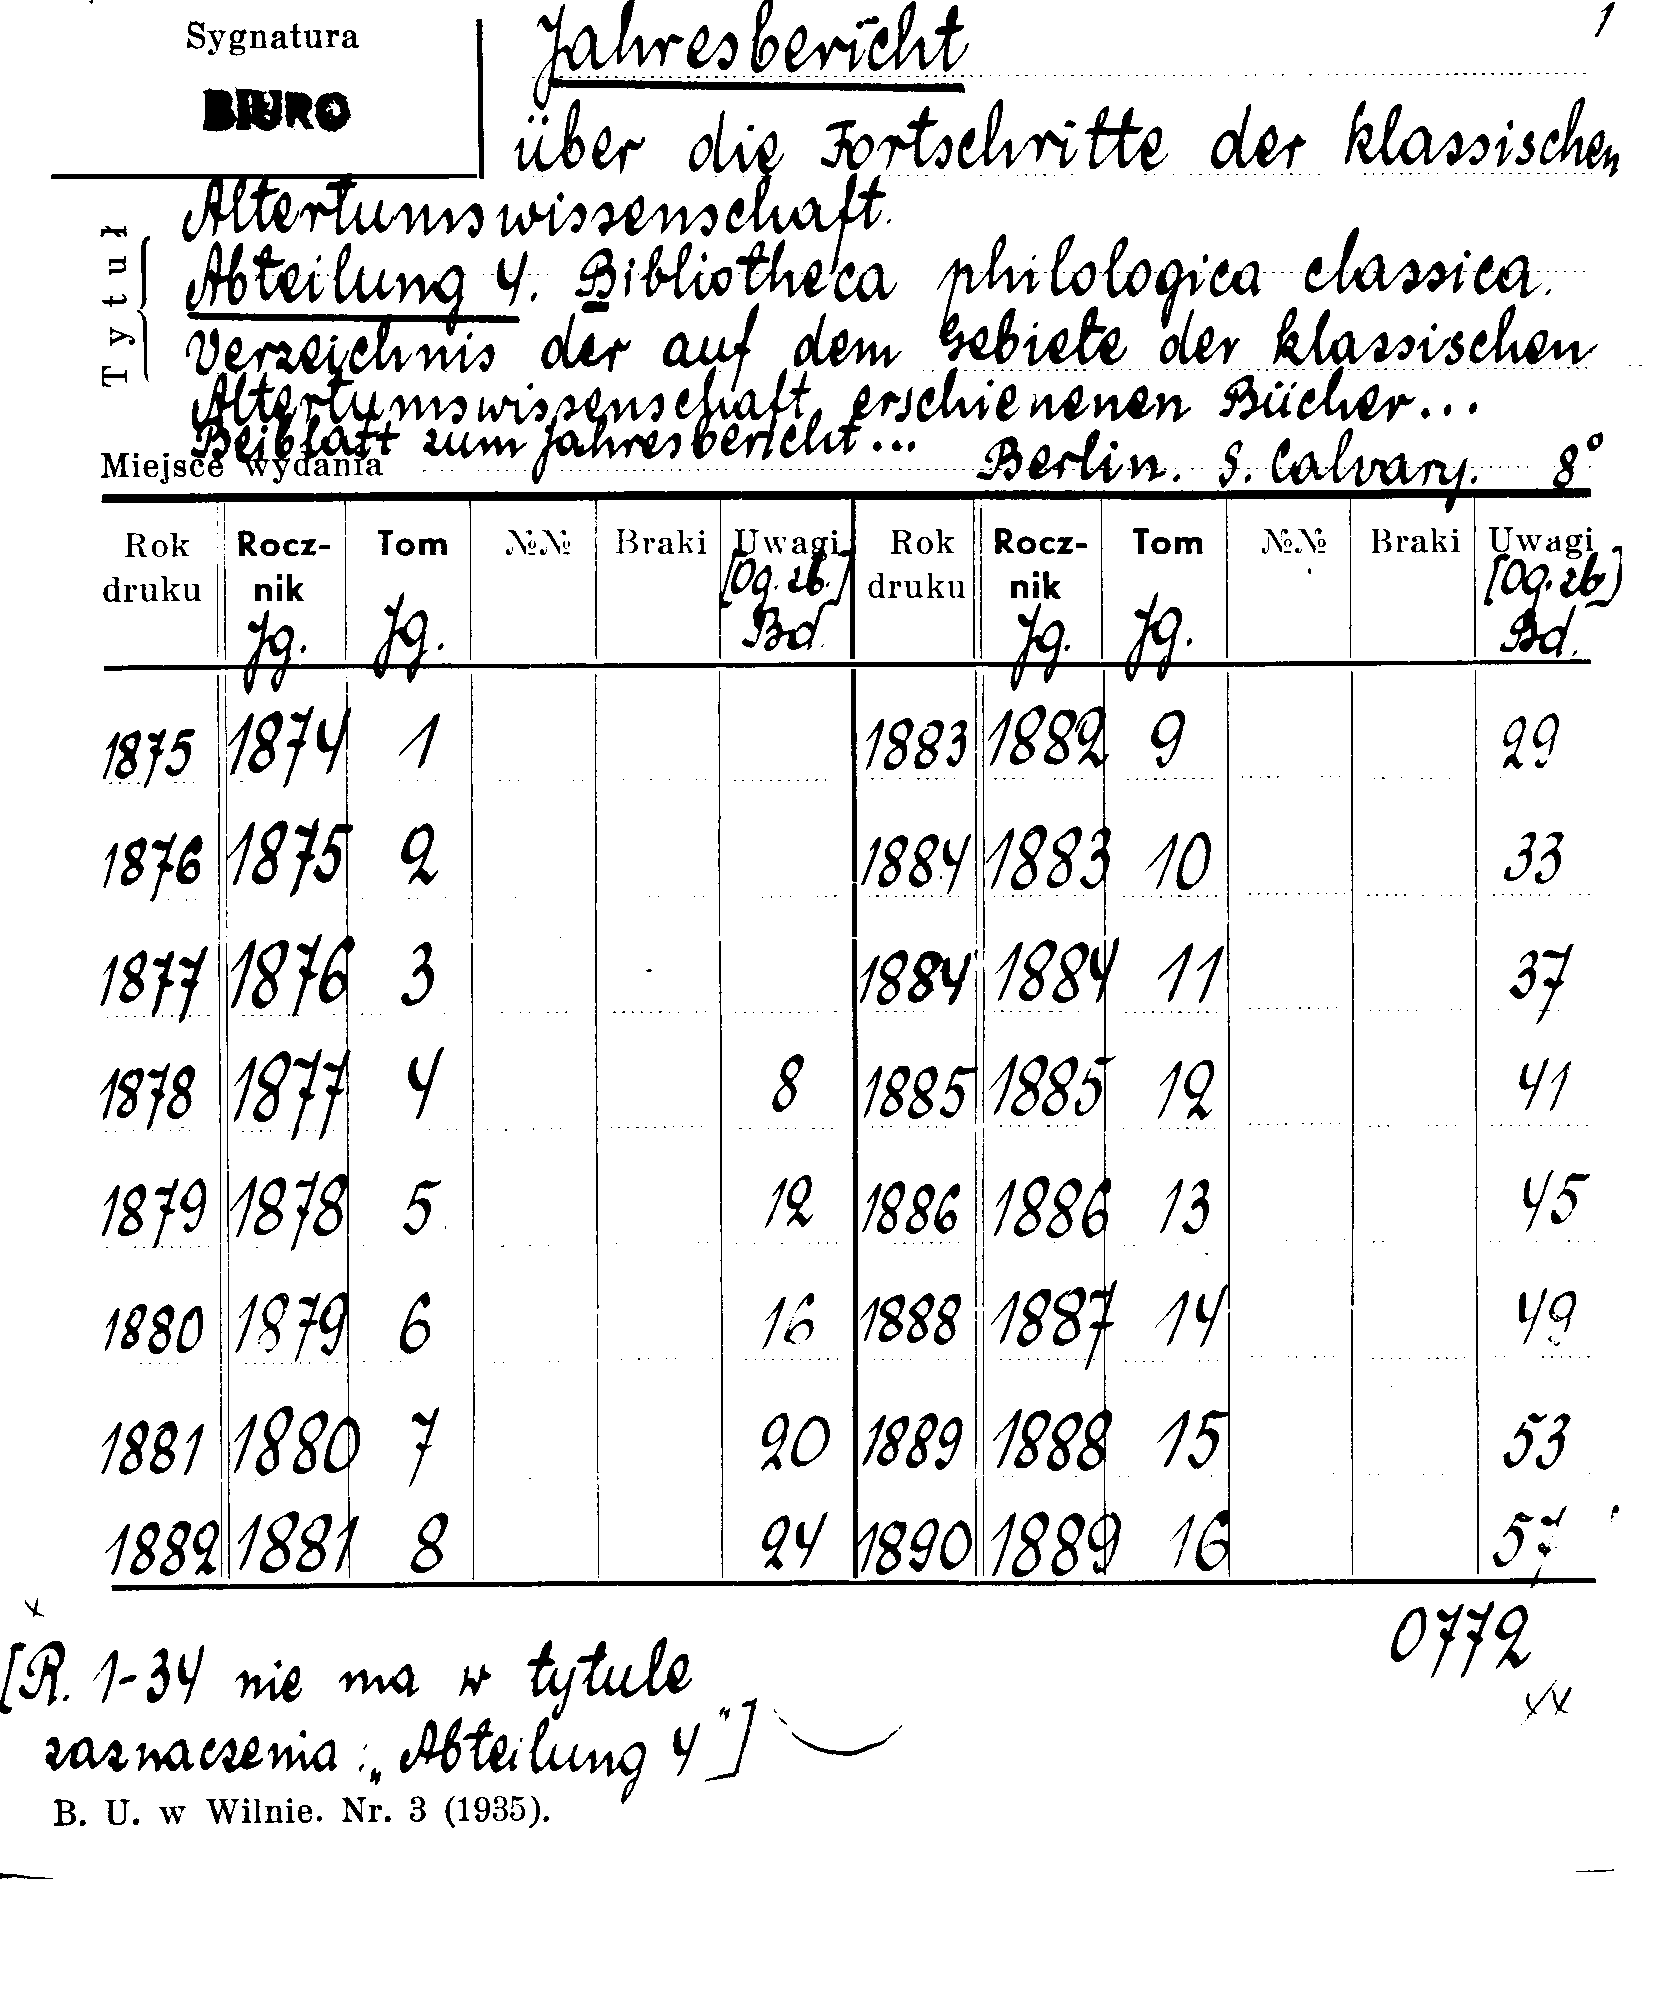 Sygnatura Jahresbericht 1
BIURO
über die Fortschritte der klassischen
Altertumswissenschaft.
Tytuł
Abteilung 4. Bibliotheca philologica classica.
Verzeichnis der auf dem Gebiete der klassischen
Altertumswissenschaft erschienenen Bücher...
Beiblatt zum Jahresbericht...
Miejsce wydania Berlin. S. Calvary. 8°
Rok Rocz- Tom №№ Braki Uwagi Rok Rocz- Tom №№ Braki Uwagi
druku nik [Og. zb.] druku nik [Og. zb.]
Jg. Jg. Bd. Jg. Jg. Bd.
1875 1874 1 1883 1882 9 29
1876 1875 2 1884 1883 10 33
1877 1876 3 1884 1884 11 37
1878 1877 4 8 1885 1885 12 41
1879 1878 5 12 1886 1886 13 45
1880 1879 6 16 1888 1887 14 49
1881 1880 7 20 1889 1888 15 53
1882 1881 8 24 1890 1889 16 57
x 0772
[R. 1-34 nie ma w tytule xx
zaznaczenia: „Abteilung 4"]
B. U. w Wilnie. Nr. 3 (1935).